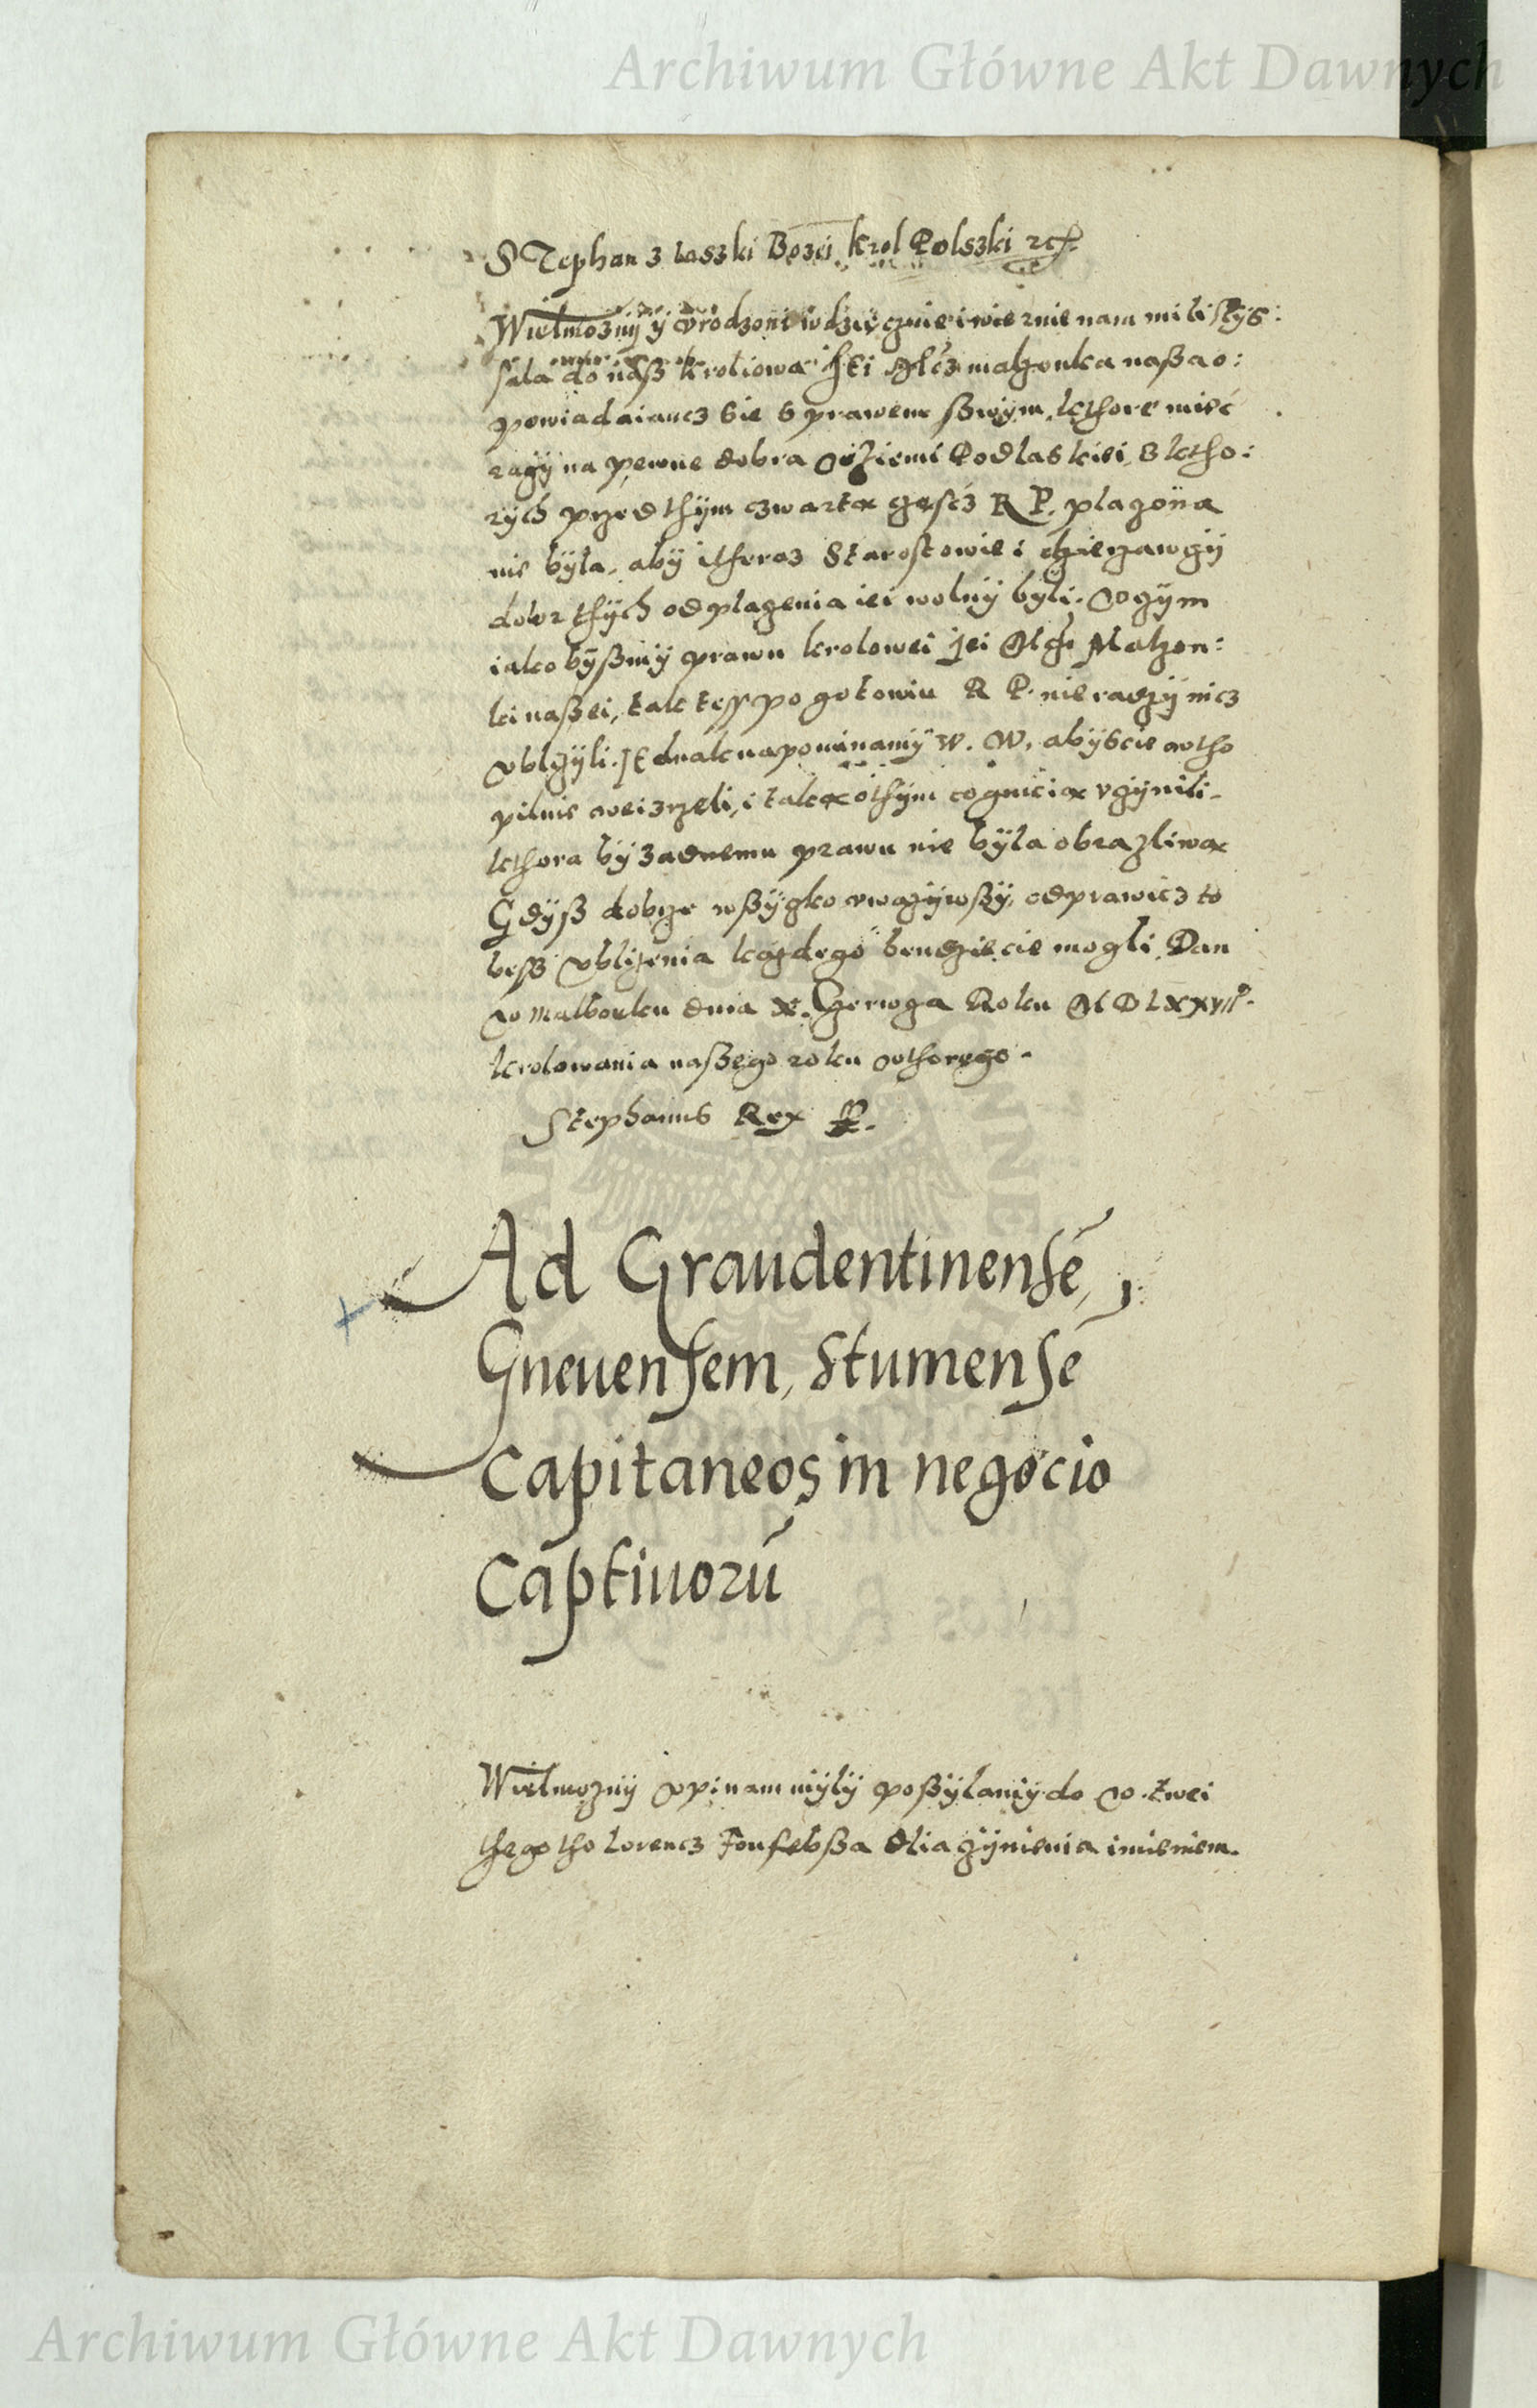 Archiwum Główne Akt Dawnych
STephan z laszki Bozei Krol Polszki etc.
Wielmozny y vrodzoni wdzięcznie i wiernie nam mili stys:
sala do nasz kroliowa Jei Mcz malzonka naßa o:
powiadaiancz sie s prawem ßwym, kthore mieć
raczy na pewne dobra w ziemi Podlaskiei, s ktho:
rych przed thym czwarta częscz R P. placzona
nie byla, aby itheraz Starostowie i dzierzawczy
dobr thych od placzenia iei wolny byli. W czym
iako byßmy prawu krolowei Jei Mczi Malzon:
ki naßei, tak tess po gotowiu R P. nie radzy nicz
vblzyli. JEdnak napominamy W. W. abyscie w tho
pilnie weizrzeli, i taka o thym cognicia vczynili
kthora by zadnemu prawu nie byla obrazliwa
Gdyß dobrze wßyczko vwazywßy, odprawicz to
beß vblizenia kazdego bendziecie mogli. Dan
w Malborku dnia X. Czerwcza Roku MDLXXVIIIº.
krolowania naßego roku wthorego.
Stephanus Rex
Ad Graudentinensē,
Gneuensem, Stumensē
Capitaneos in negocio
Captiuorū
Wielmozny vp: nam myly poßylamy do W. twei
thego tho lorencz dlia czynienia imieniem.
Archiwum Główne Akt Dawnych